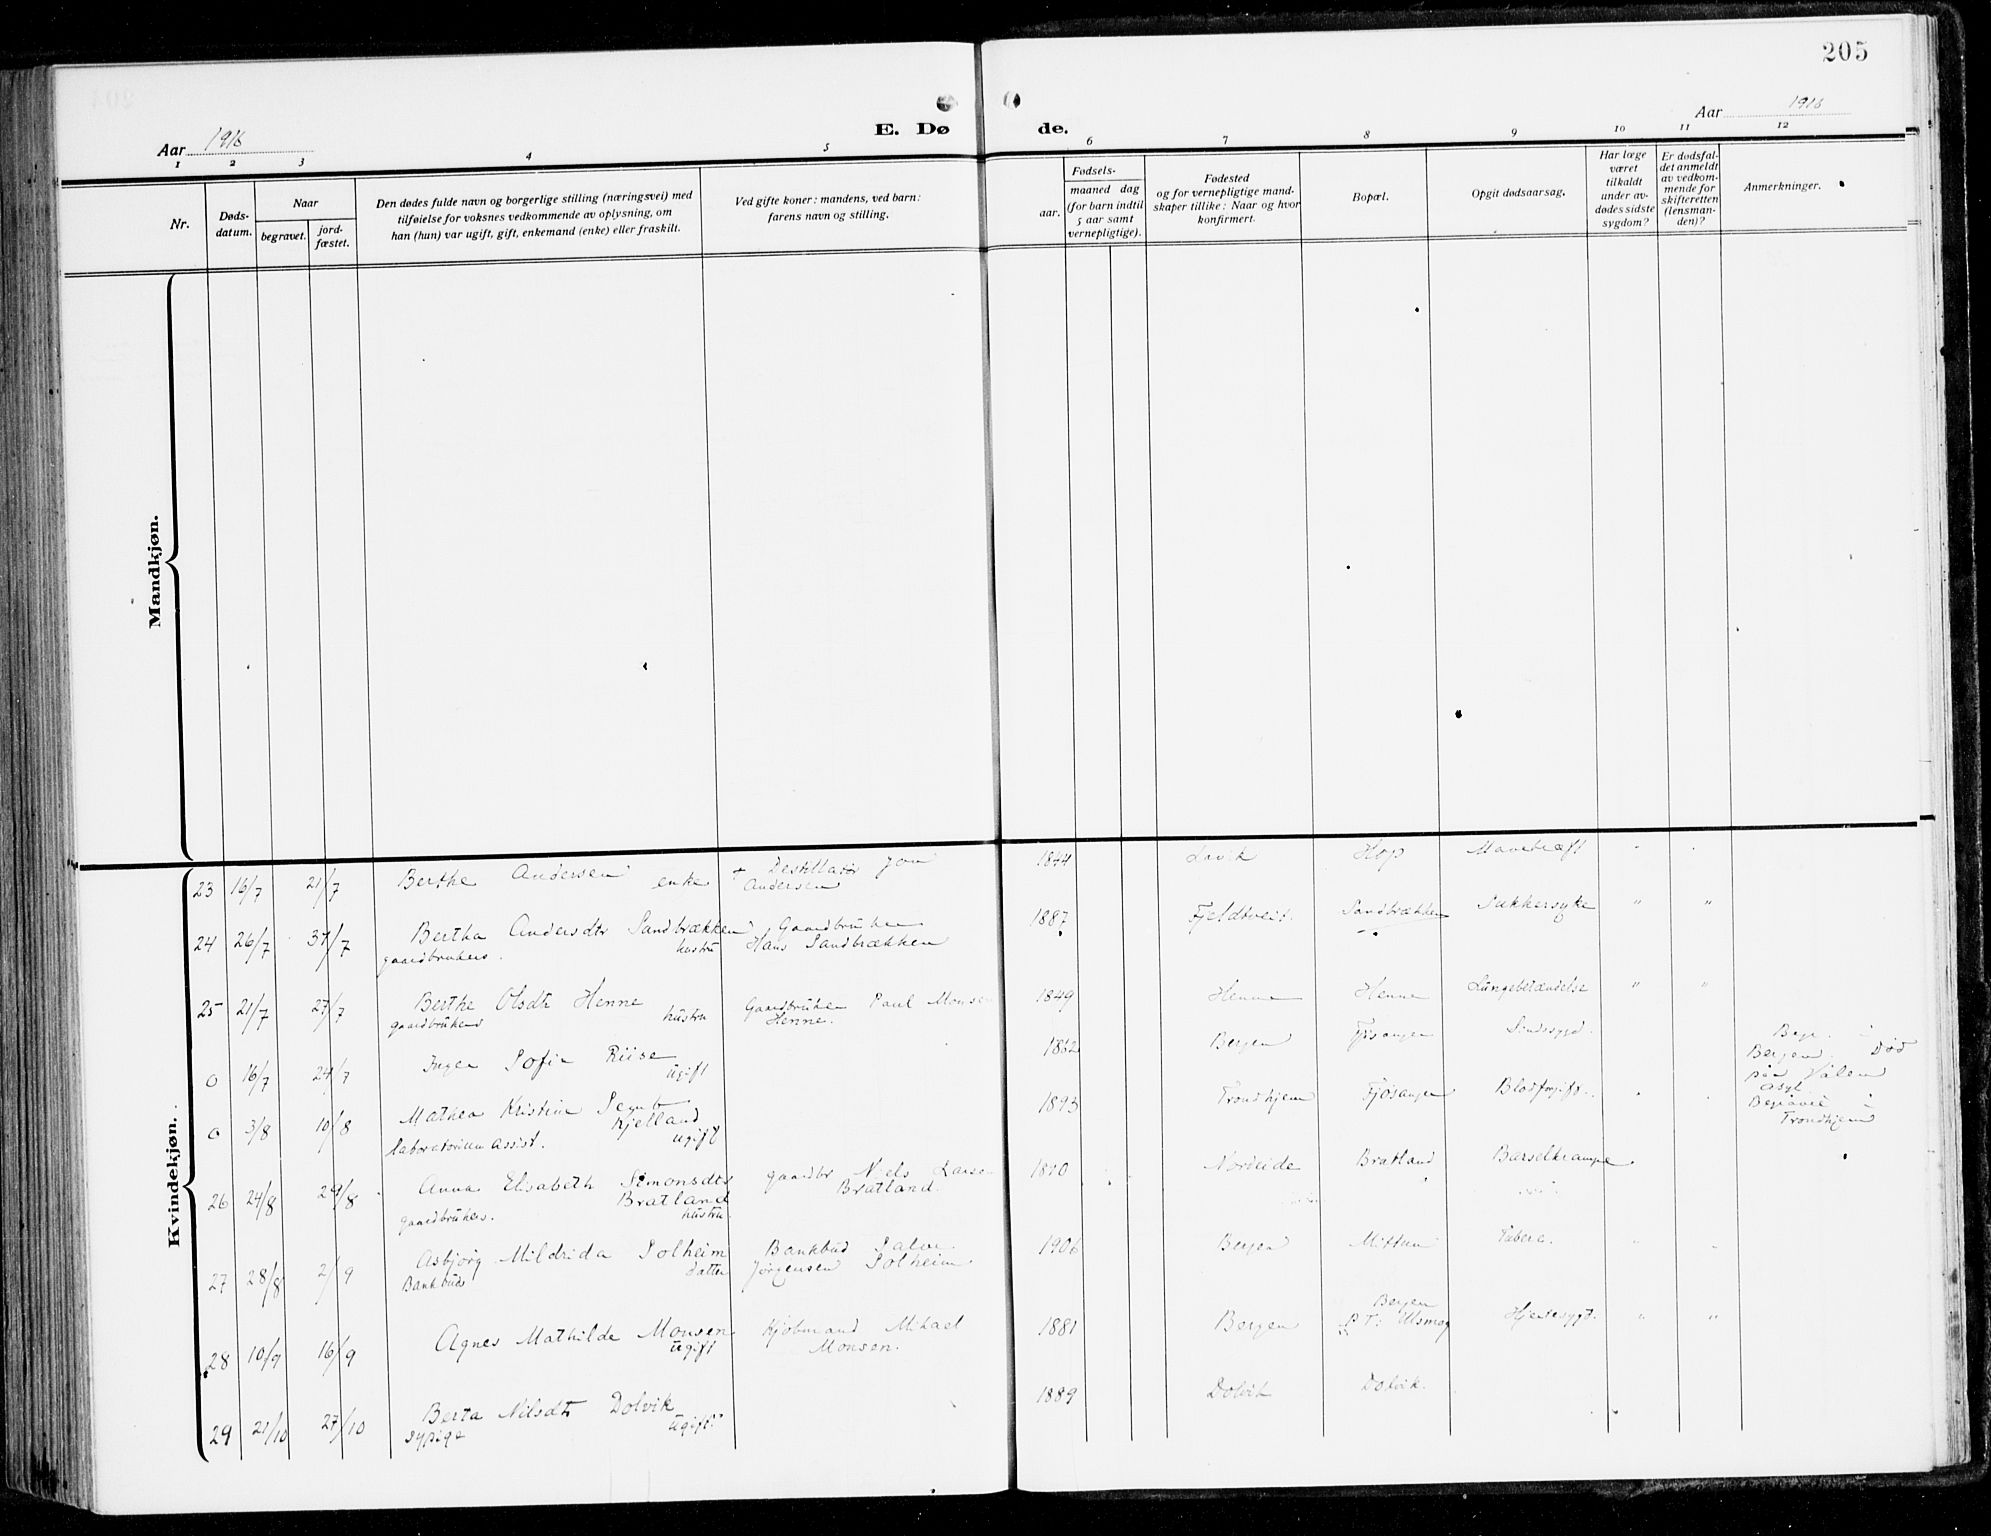 205
Aar 1916
E. Dø
de.
Aar 1916
1 2 3 4 5 6 7 8 9 10 11 12
Nr.
Døds-
datum.
Naar
begravet.
jord-
fæstet.
Den dødes fulde navn og borgerlige stilling (næringsvei) med
tilføielse for voksnes vedkommende av oplysning, om
han (hun) var ugift, gift, enkemand (enke) eller fraskilt.
Ved gifte koner: mandens, ved barn:
farens navn og stilling.
Fødsels-
aar.
maaned dag
(for barn indtil
5 aar samt
vernepligtige).
Fødested
og for vernepligtige mand-
skaper tillike: Naar og hvor
konfirmert.
Bopæl.
Opgit dødsaarsag.
Har læge
været
tilkaldt
under av-
dødes sidste
sygdom?
Er dødsfal-
det anmeldt
av vedkom-
mende for
skifteretten
(lensman-
den)?
Anmerkninger.
Mandkjøn.
Kvindekjøn.
23 16/7 21/7 Berthe Andersen enke + Destillatør Jon
Andersen
1844 Lavik Hop Mavekræft " "
24 26/7 31/7 Bertha Andersdtr Sandbrækken Gaardbruker
gaardbrukers. hustru Hans Sandbrækken
1887 Fjeldtveit. Sandbrækken Sukkersyke " "
25 21/7 27/7 Berthe Olsdtr Henne Gaardbruker Paul Monsen
gaardbrukers hustru Henne.
1849 Henne Henne Lungebetændelse " "
0 16/7 24/7 Inga Sofie Riise
ugift
1862 Bergen Fjøsanger Sindssygd.
Begr. i
Bergen. Død
paa Vålen
asyl
0 3/8 10/8 Mathea Kristine
Kjelland
Laboratorium Assist. ugift
1893 Trondhjem Fjøsanger Blodforgift. " "
Begravet i
Trondhjem
26 24/8 29/8 Anna Elisabeth Simonsdtr gaardbr Niels Larsen
Bratland Bratland.
gaardbrukers. hustru
Nordeide Bratland Barselkrampe
27 28/8 2/9 Asbjørg Mildrida Solheim Bankbud
Bankbud datter Jørgensen Solheim
1906 Bergen Mittun Tuberc. " "
28 10/9 16/9 Agnes Mathilde Monsen Kjøbmand Mikael
ugift Monsen.
Bergen
1881 Bergen P.T. Ulsmåg Hjertesygd. " "
29 21/10 27/10 Berta Nilsdtr Dolvik
sypige ugift
1889 Dolvik Dolvik.